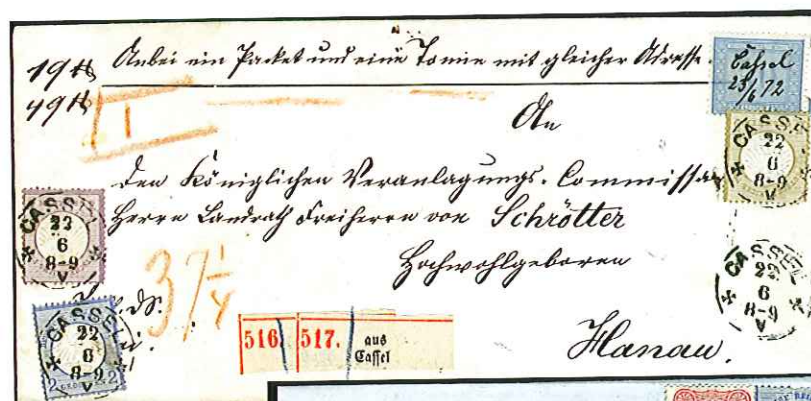 Anbei ein Packet und eine Tonne mit gleicher Adresse.
19 ℔
49 ℔
I
Cassel
23/6 72
An
den Königlichen Veranlagungs-Commissar
Herrn Landrath Freiherrn von Schrötter
Hochwohlgeboren
Hanau.
37 1/4
CASSEL
22
6
8-9
V
CASSEL
23
6
8-9
V
CASSEL
22
6
8-9
V
CASSEL
22
6
8-9
V
2
2
516
517.
aus
Cassel